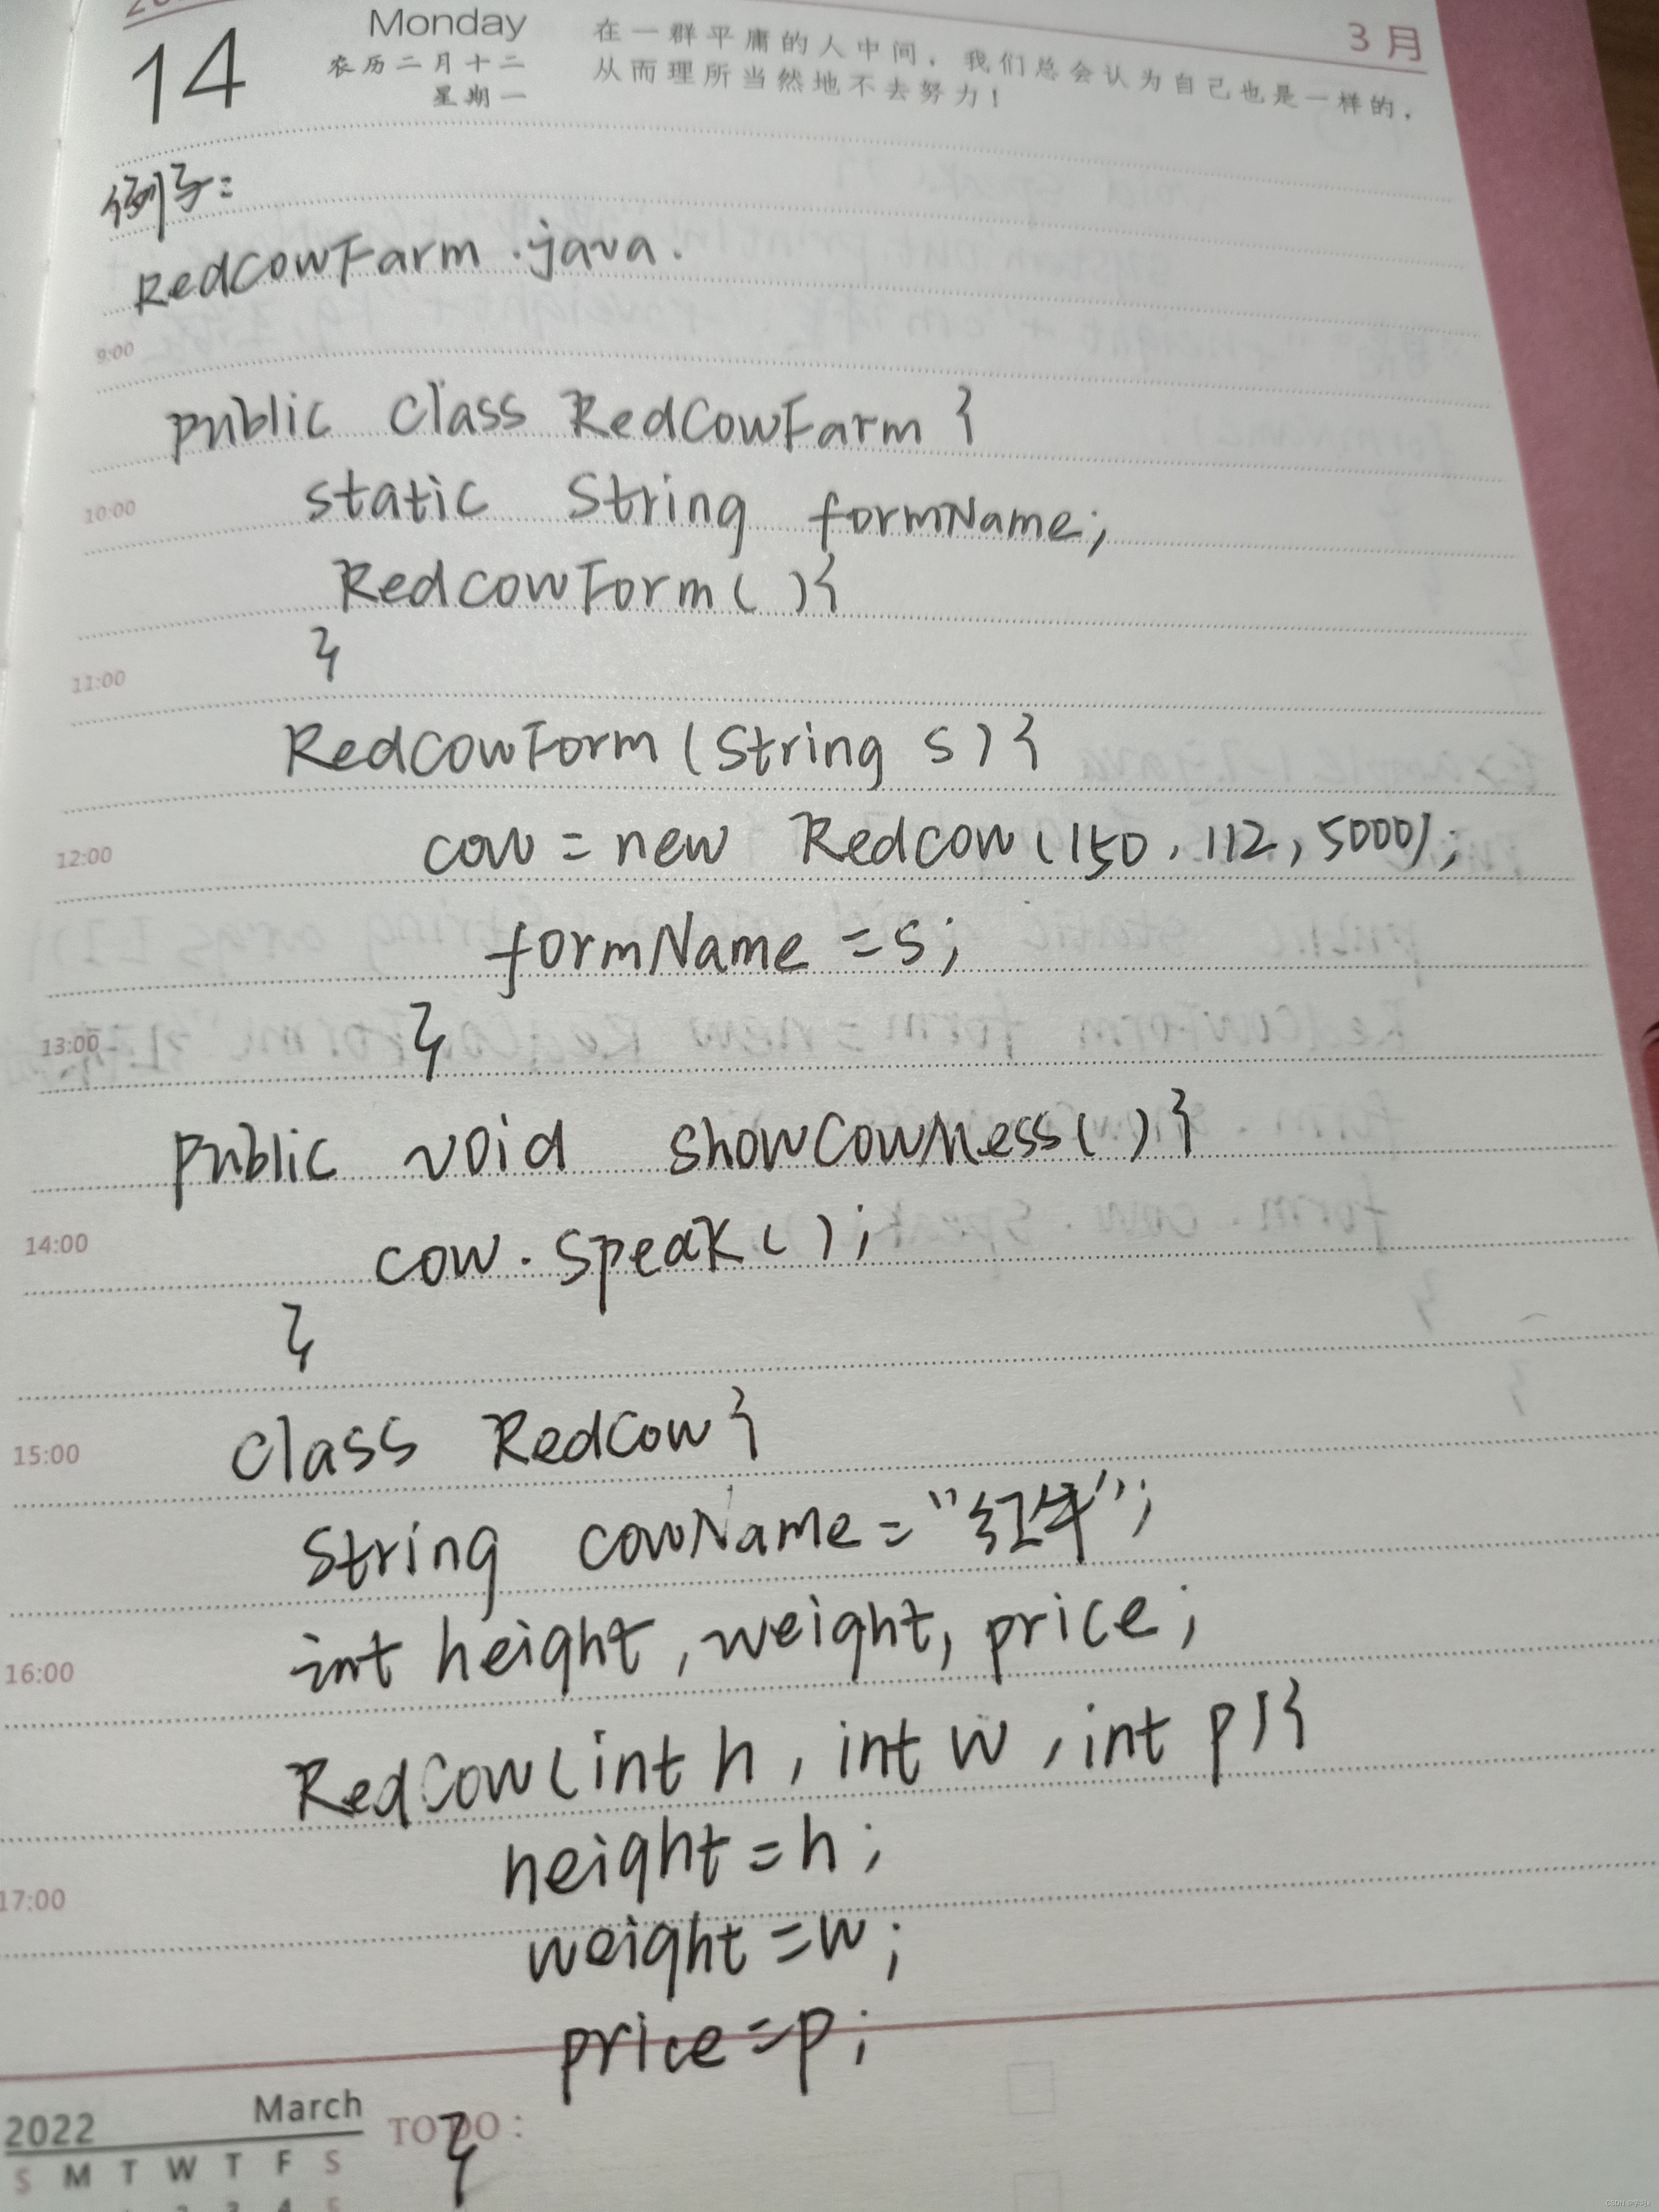 14 Monday 3月
农历二月十二
星期一
在一群平庸的人中间，我们总会认为自己也是一样的，
从而理所当然地不去努力！
例子：
RedCowFarm.java.
9:00
public class RedCowFarm {
10:00
static String formName;
RedcowForm( ){
}
11:00
RedCowForm(String s){
12:00
cow = new Redcow(150, 112, 5000);
formName = s;
13:00
}
public void showCowMess( ){
14:00
cow.speak( );
}
15:00
class RedCow{
String cowName = "红牛";
16:00
int height, weight, price;
RedCow(int h, int w, int p){
height = h;
17:00
weight = w;
price = p;
2022 March
TO DO :
}
S M T W T F S